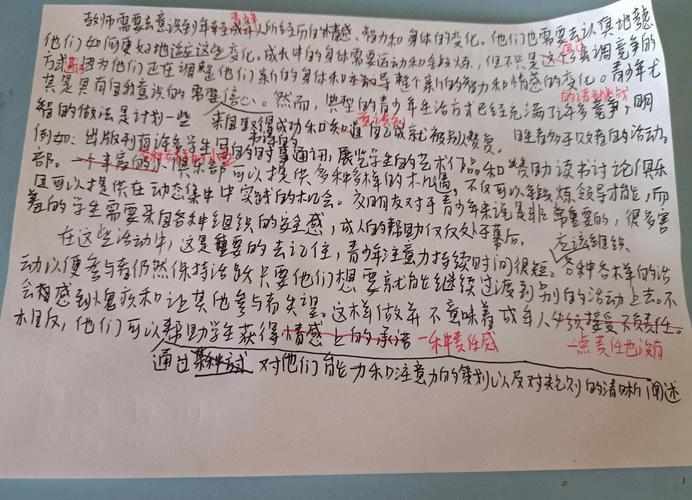 教师需要去意识到年轻成年人所经历的情感、智力和身体的变化。他们也需要去认真地考虑
他们如何更好地适应这些变化。成长中的身体需要运动和锻炼，但不是这个强调竞争的
方式 因为他们正在调整他们新的身体和 整个新的智力和情感的变化。青少年尤
其是具有自我意识的 需要信心。然而，典型的青少年生活方式已经充满了许多竞争，明
智的做法是计划一些 来自取得成功和知道自己成就被别人赞赏。 胜者多于败者的活动。
例如：出版刊有许多学生 的时事通讯，展览学生的艺术作品和赞助读书讨论俱乐
部。一个丰富的小俱乐部可以提供多种多样的机遇，不仅可以锻炼领导才能，而
且可以提供在动态集中实践的机会。友朋友对于青少年来说是非常重要的，很多害
羞的学生需要来自各种组织的安全感，成人的帮助仅仅处于幕后。
在这些活动中，这是重要的去记住，青少年注意力持续时间很短。应该组织
各种各样的活
动以便参与者仍然保持活跃只要他们想要就能继续过渡到别的活动上去。不
会 感到愧疚和让其他参与者失望。这样做并不意味着成年人必须接受不负责任。
相反，他们可以帮助学生获得情感上的承诺 一种责任感 一点责任也没有
通过某种方式 对他们能力和注意力的策划以及对规则的清晰阐述